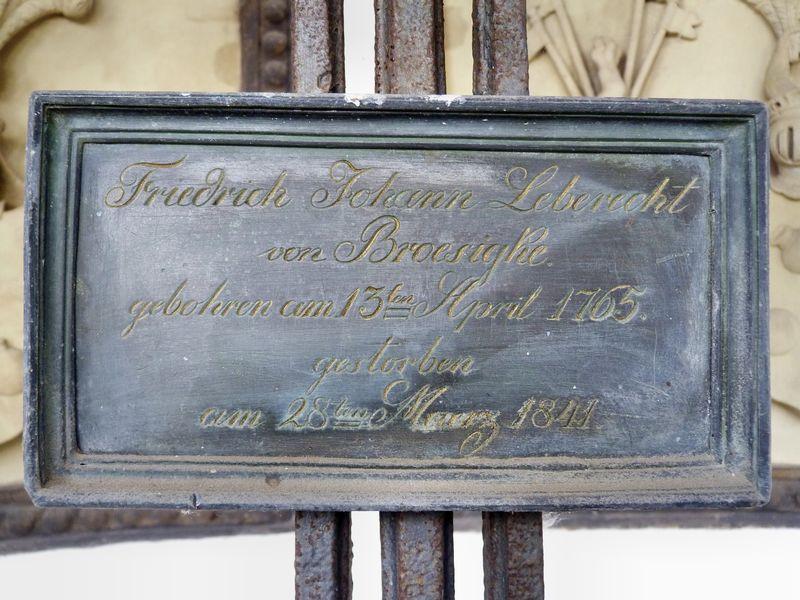 Friedrich Johann Leberecht
von Broesigke.
gebohren am 13ten April 1765.
gestorben
am 28ten Maerz 1841